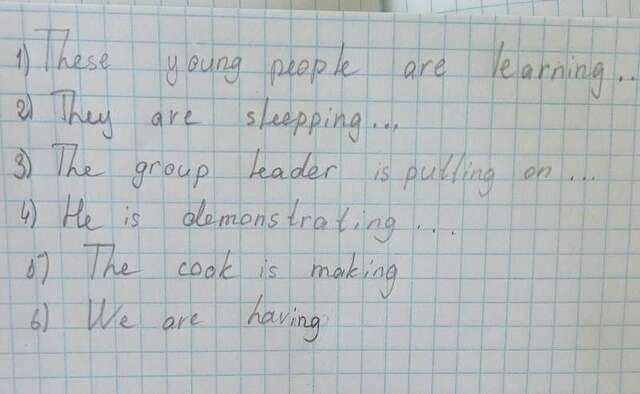 1) These young people are learning...
2) They are sleepping...
3) The group leader is putting on ...
4) He is demonstrating....
5) The cook is making
6) We are having